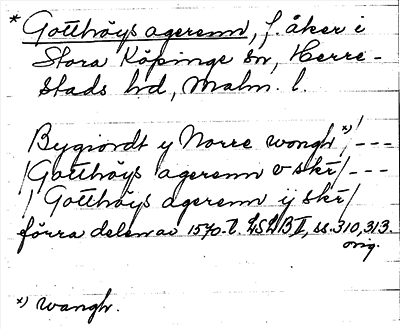 * Gotthöÿs agerenn, f. åker i
Stora Köpinge sn, Herre-
stads hd, Malm. l.
/Bygiordt y Norre wongh *)/ ---
/Gotthöÿs agerenn v skr/ ---
/ Gotthöÿs agerenn ij skr/
förra delen av 1570-t. LSLB II, ss. 310, 313.
orig.
*) wangh.